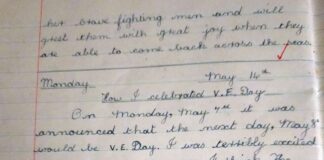 her brave fighting men and will
greet them with great joy when they
are able to come back across the seas.
Monday May 14th
How I celebrated V.E. Day
On Monday, May 7th it was
announced that the next day, May 8th
would be V.E. Day. I was terribly excited